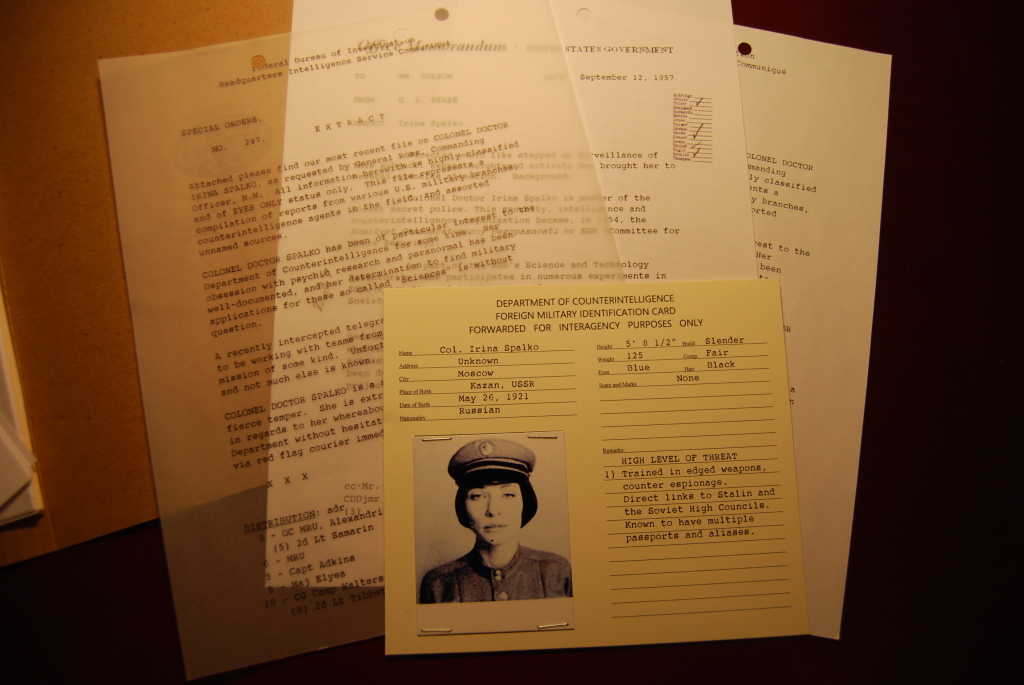 Federal Bureau of Investigation
Headquarters Intelligence Service Communiqué
SPECIAL ORDERS.
NO. 249.
EXTRACT
Attached please find our most recent file on COLONEL DOCTOR
IRINA SPALKO, as requested by General Ross, Commanding
Officer, N.M. All information herewith is highly classified
and of EYES ONLY status only. This file represents a
compilation of reports from various U.S. military branches,
counterintelligence agents in the field, and assorted
unnamed sources.
COLONEL DOCTOR SPALKO has been of particular interest to the
Department of Counterintelligence for some time. Her
obsession with psychic research and paranormal has been
well-documented, and her determination to find military
applications for these so called "Sciences" is without
question.
A recently intercepted telegra
to be working with teams from
mission of some kind. Unfort
and not much else is known.
COLONEL DOCTOR SPALKO is a
fierce temper. She is extr
in regards to her whereabou
Department without hesitat
via red flag courier immed
X X X
DISTRIBUTION: adr
- OC MRU, Alexandri
(5) 2d Lt Samarin
- MRU
- Capt Adkins
- Maj Elyea
10 - CG Camp Walters
(8) 2d Lt Tibbet
Office Memorandum
STATES GOVERNMENT
TO MR. TOLSON
September 12, 1957
FROM
Irina Spalko
like stepped up surveillance of
activity has brought her to
Background:
Colonel Doctor Irina Spalko is member of the
secret police. This intelligence and
counterintelligence became, in 1954, the
or KGB Committee for
Science and Technology
participates in numerous experiments in
Soviet
cc-Mr.
CDDjmr
(3)
Communiqué
COLONEL DOCTOR
manding
ly classified
nts a
y branches,
orted
rest to the
Her
been
DEPARTMENT OF COUNTERINTELLIGENCE
FOREIGN MILITARY IDENTIFICATION CARD
FORWARDED FOR INTERAGENCY PURPOSES ONLY
Name Col. Irina Spalko
Address Unknown
City Moscow
Place of Birth Kazan, USSR
Date of Birth May 26, 1921
Nationality Russian
Height 5' 8 1/2" Build Slender
Weight 125 Comp. Fair
Eyes Blue Hair Black
Scars and Marks None
Remarks
HIGH LEVEL OF THREAT
1) Trained in edged weapons,
counter espionage.
Direct links to Stalin and
the Soviet High Councils.
Known to have multiple
passports and aliases.